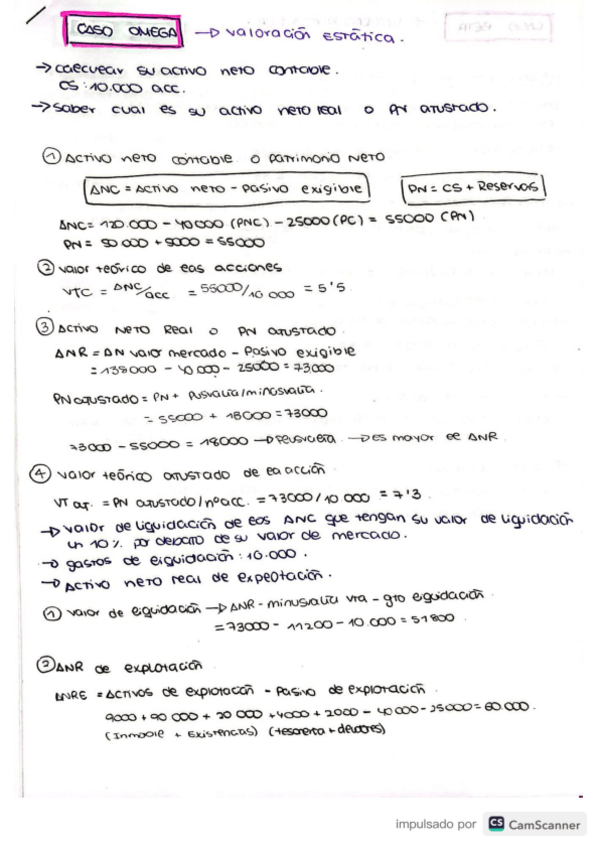 CASO OMEGA → valoración estática.
→ calcular su activo neto contable.
CS: 10.000 acc.
→ saber cual es su activo neto real o PN ajustado.
① Activo neto contable o Patrimonio Neto
ANC = Activo neto - Pasivo exigible PN = CS + Reservas
ANC = 120.000 - 40000 (PNC) - 25000 (PC) = 55000 (PN)
PN = 50 000 + 5000 = 55000
② Valor teórico de las acciones
VTC = ANC/acc = 55000/10 000 = 5'5
③ Activo Neto Real o PN ajustado.
ANR = AN valor mercado - Pasivo exigible
= 138000 - 40 000 - 25000 = 73000
PN ajustado = PN + plusvalía/minusvalía.
= 55000 + 18000 = 73000
73000 - 55000 = 18000 → plusvalía → Es mayor el ANR.
④ Valor teórico ajustado de la acción
VT aj. = PN ajustado/nº acc. = 73000/10 000 = 7'3
→ Valor de liquidación de los ANC que tengan su valor de liquidación
un 10% por debajo de su valor de mercado.
→ gastos de liquidación: 10.000.
→ Activo neto real de explotación.
① Valor de liquidación → ANR - minusvalía vta - gto liquidación
= 73000 - 11200 - 10.000 = 51800
② ANR de explotación
ANRE = Activos de explotación - Pasivo de explotación.
9000 + 90 000 + 20 000 + 4000 + 2000 - 40 000 - 25000 = 60.000.
(Inmoble + Existencias) (tesorería + deudores)
impulsado por CS CamScanner